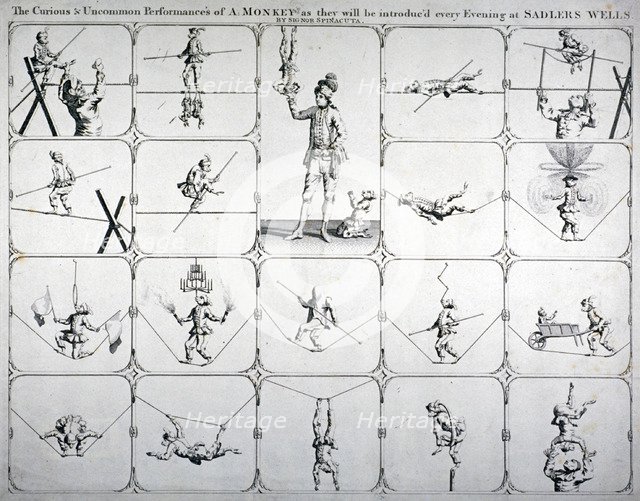 The Curious & Uncommon Performances of A MONKEY as they will be introduc'd every Evening at SADLERS WELLS
BY SIGNOR SPINACUTA.
Heritage
Heritage
Heritage
Heritage
Heritage
Heritage